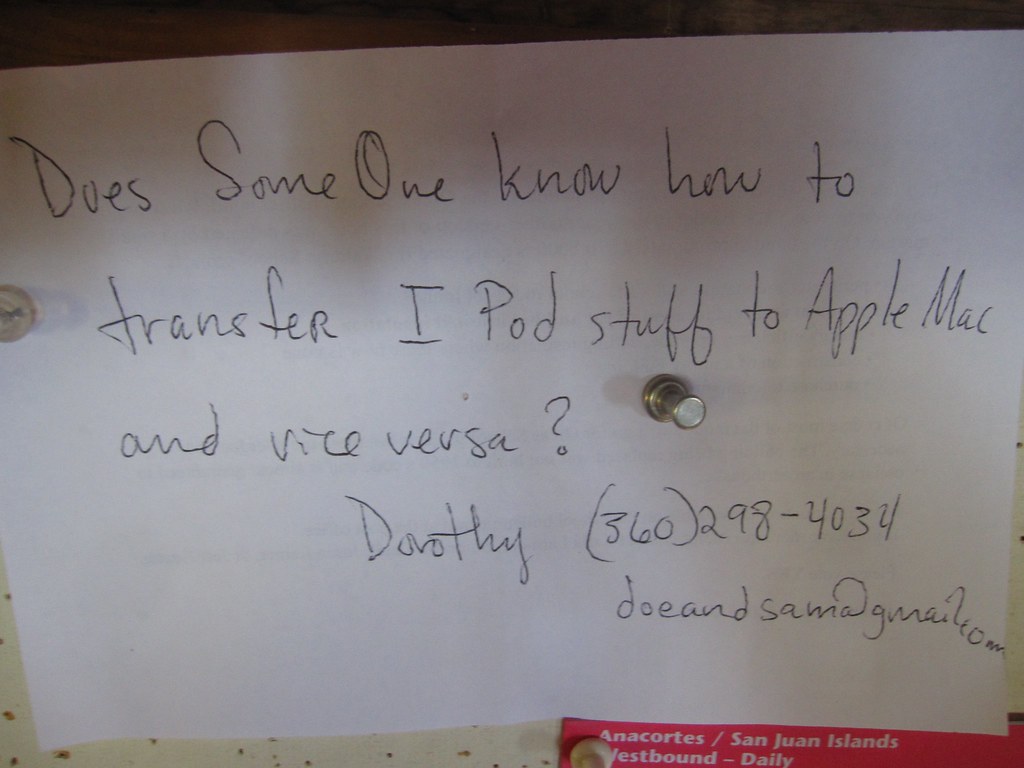 Does SomeOne know how to
transfer I Pod stuff to Apple Mac
and vice versa?
Dorothy (360)298-4034
doeandsam@gmail.com
Anacortes / San Juan Islands
Westbound – Daily